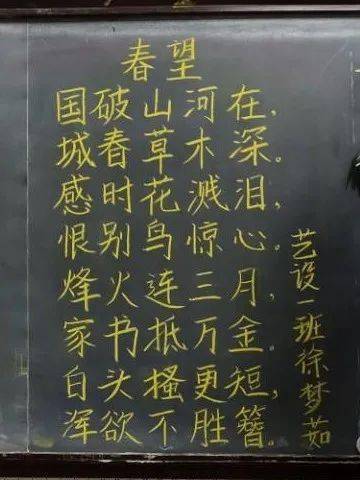 春望
国破山河在,
城春草木深。
感时花溅泪,
恨别鸟惊心。
烽火连三月,
家书抵万金。
白头搔更短,
浑欲不胜簪。
艺设一班徐梦茹